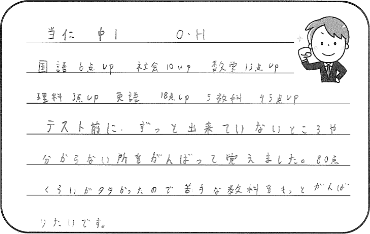 当仁 中1 O.H
国語 6点up 社会 10up 数学 13点up
理科 3点up 英語 18点up 5教科 45点up
テスト前に、ずっと出来ていないところや
分からない所をがんばって覚えました。80点
くらいが多かったので苦手な教科をもっとがんば
りたいです。